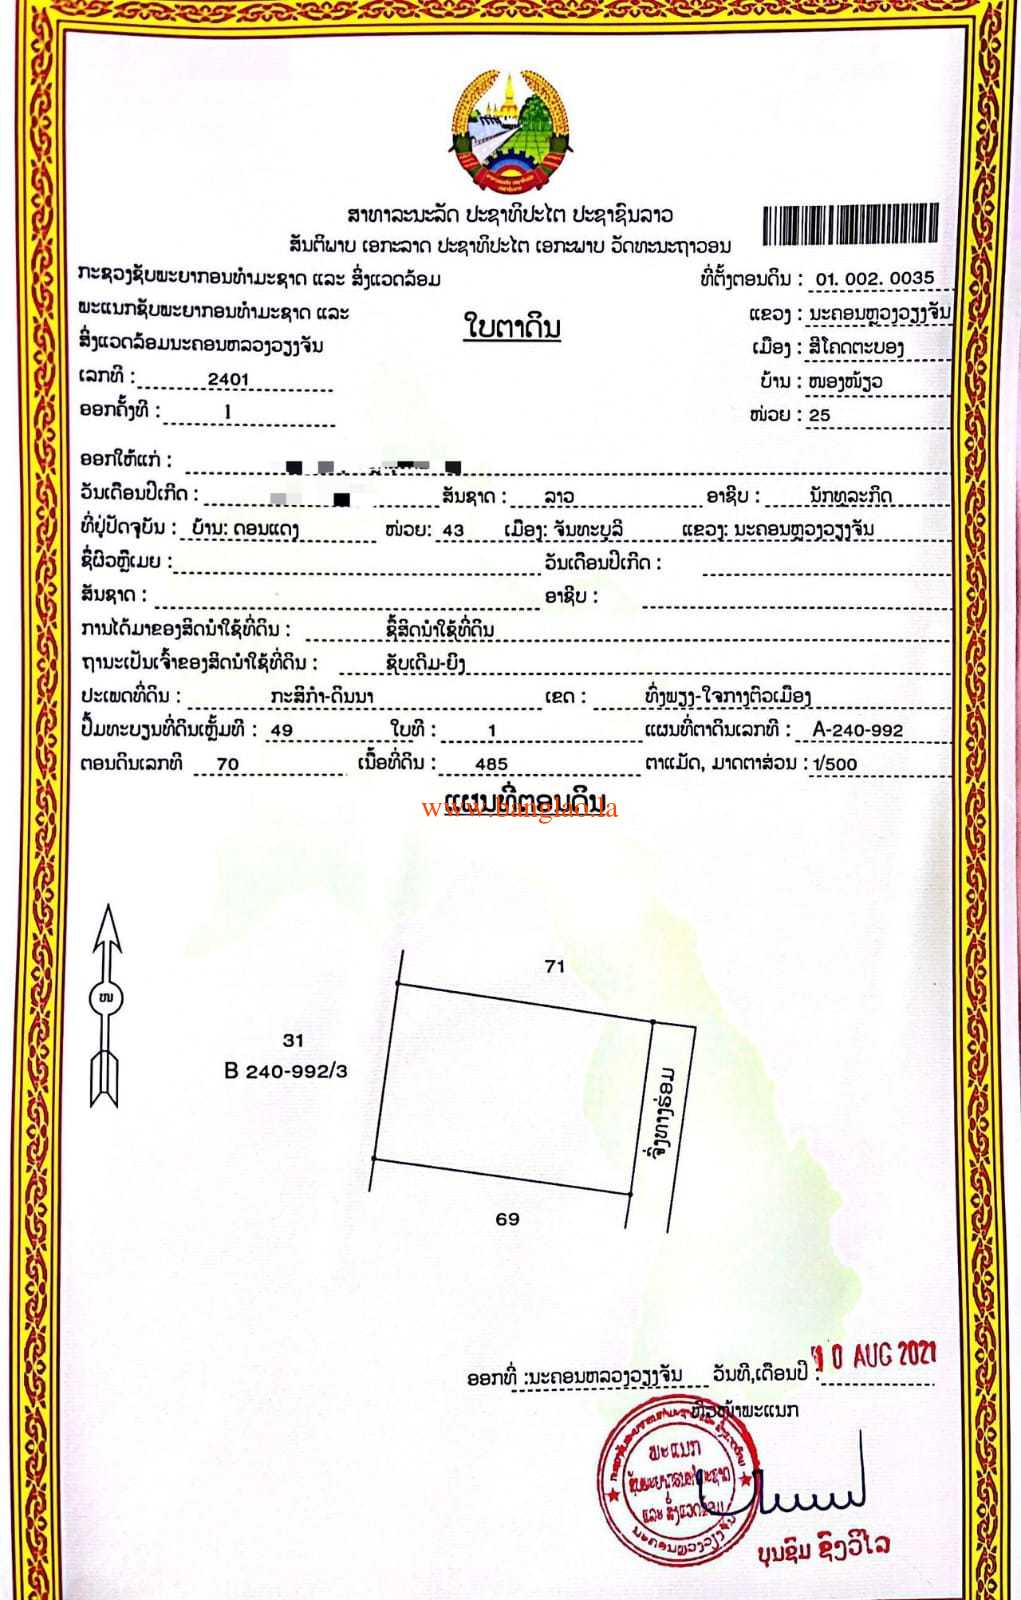 ສາທາລະນະລັດ ປະຊາທິປະໄຕ ປະຊາຊົນລາວ
ສັນຕິພາບ ເອກະລາດ ປະຊາທິປະໄຕ ເອກະພາບ ວັດທະນະຖາວອນ
ກະຊວງຊັບພະຍາກອນທຳມະຊາດ ແລະ ສິ່ງແວດລ້ອມ
ທີ່ຕັ້ງຕອນດິນ : 01. 002. 0035
ພະແນກຊັບພະຍາກອນທຳມະຊາດ ແລະ
ແຂວງ : ນະຄອນຫຼວງວຽງຈັນ
ໃບຕາດິນ
ສິ່ງແວດລ້ອມນະຄອນຫລວງວຽງຈັນ
ເມືອງ : ສີໂຄດຕະບອງ
ເລກທີ : 2401
ບ້ານ : ໜອງໜ້ຽວ
ອອກຄັ້ງທີ : 1
ໜ່ວຍ : 25
ອອກໃຫ້ແກ່ :
ວັນເດືອນປີເກີດ : ສັນຊາດ : ລາວ ອາຊີບ : ນັກທຸລະກິດ
ທີ່ຢູ່ປັດຈຸບັນ : ບ້ານ: ດອນແດງ ໜ່ວຍ: 43 ເມືອງ: ຈັນທະບູລີ ແຂວງ: ນະຄອນຫຼວງວຽງຈັນ
ຊື່ຜົວຫຼືເມຍ : ວັນເດືອນປີເກີດ :
ສັນຊາດ : ອາຊີບ :
ການໄດ້ມາຂອງສິດນຳໃຊ້ທີ່ດິນ : ຊື້ສິດນຳໃຊ້ທີ່ດິນ
ຖານະເປັນເຈົ້າຂອງສິດນຳໃຊ້ທີ່ດິນ : ຊັບເດີມ-ຍິງ
ປະເພດທີ່ດິນ : ກະສິກຳ-ດິນນາ ເຂດ : ທົ່ງພຽງ-ໃຈກາງຕົວເມືອງ
ປຶ້ມທະບຽນທີ່ດິນເຫຼັ້ມທີ : 49 ໃບທີ : 1 ແຜນທີ່ຕາດິນເລກທີ : A-240-992
ຕອນດິນເລກທີ 70 ເນື້ອທີ່ດິນ : 485 ຕາແມັດ, ມາດຕາສ່ວນ : 1/500
ແຜນທີ່ຕອນດິນ
www.banglao.la
71
ໜ
31
B 240-992/3
ຈຶ່ງທາງຮ່ອມ
69
ອອກທີ່ :ນະຄອນຫລວງວຽງຈັນ ວັນທີ,ເດືອນປີ : 10 AUG 2021
ຫົວໜ້າພະແນກ
ພະແນກ
ຊັບພະຍາກອນທຳມະຊາດ
ແລະ ສິ່ງແວດລ້ອມ
ນະຄອນຫຼວງວຽງຈັນ
ບຸນຊົມ ຊົງວິໄລ